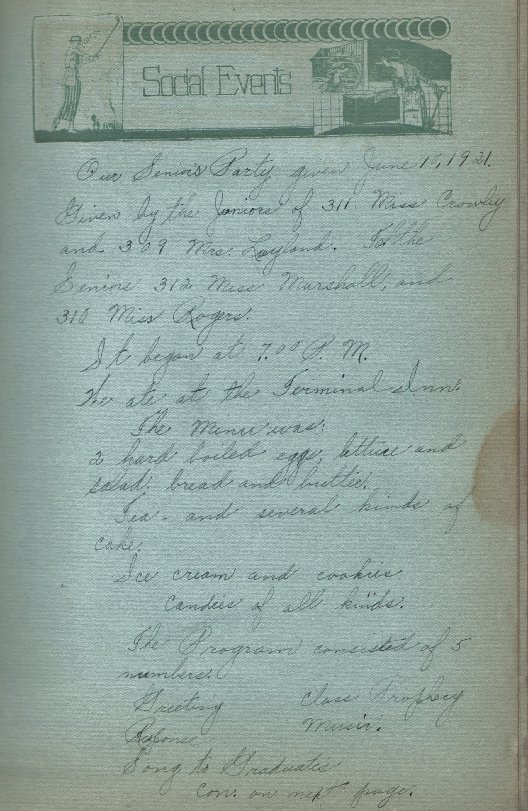 Social Events
Our Seniors Party given June 15, 1921.
Given by the Juniors of 311. Miss Crowley
and 309 Mrs. Layland. For the
Seniors 312 Miss Marshall, and
310 Miss Rogers.
It began at 7.00 P.M.
We ate at the Terminal Inn.
The Menu was.
2 hard boiled eggs, lettuce and
salad, bread and butter.
Tea - and several kinds of
cake.
Ice cream and cookies
candies of all kinds.
The Program consisted of 5
numbers.
Greeting Class Prophecy
Response Music.
Song to Graduates
con. on next page.